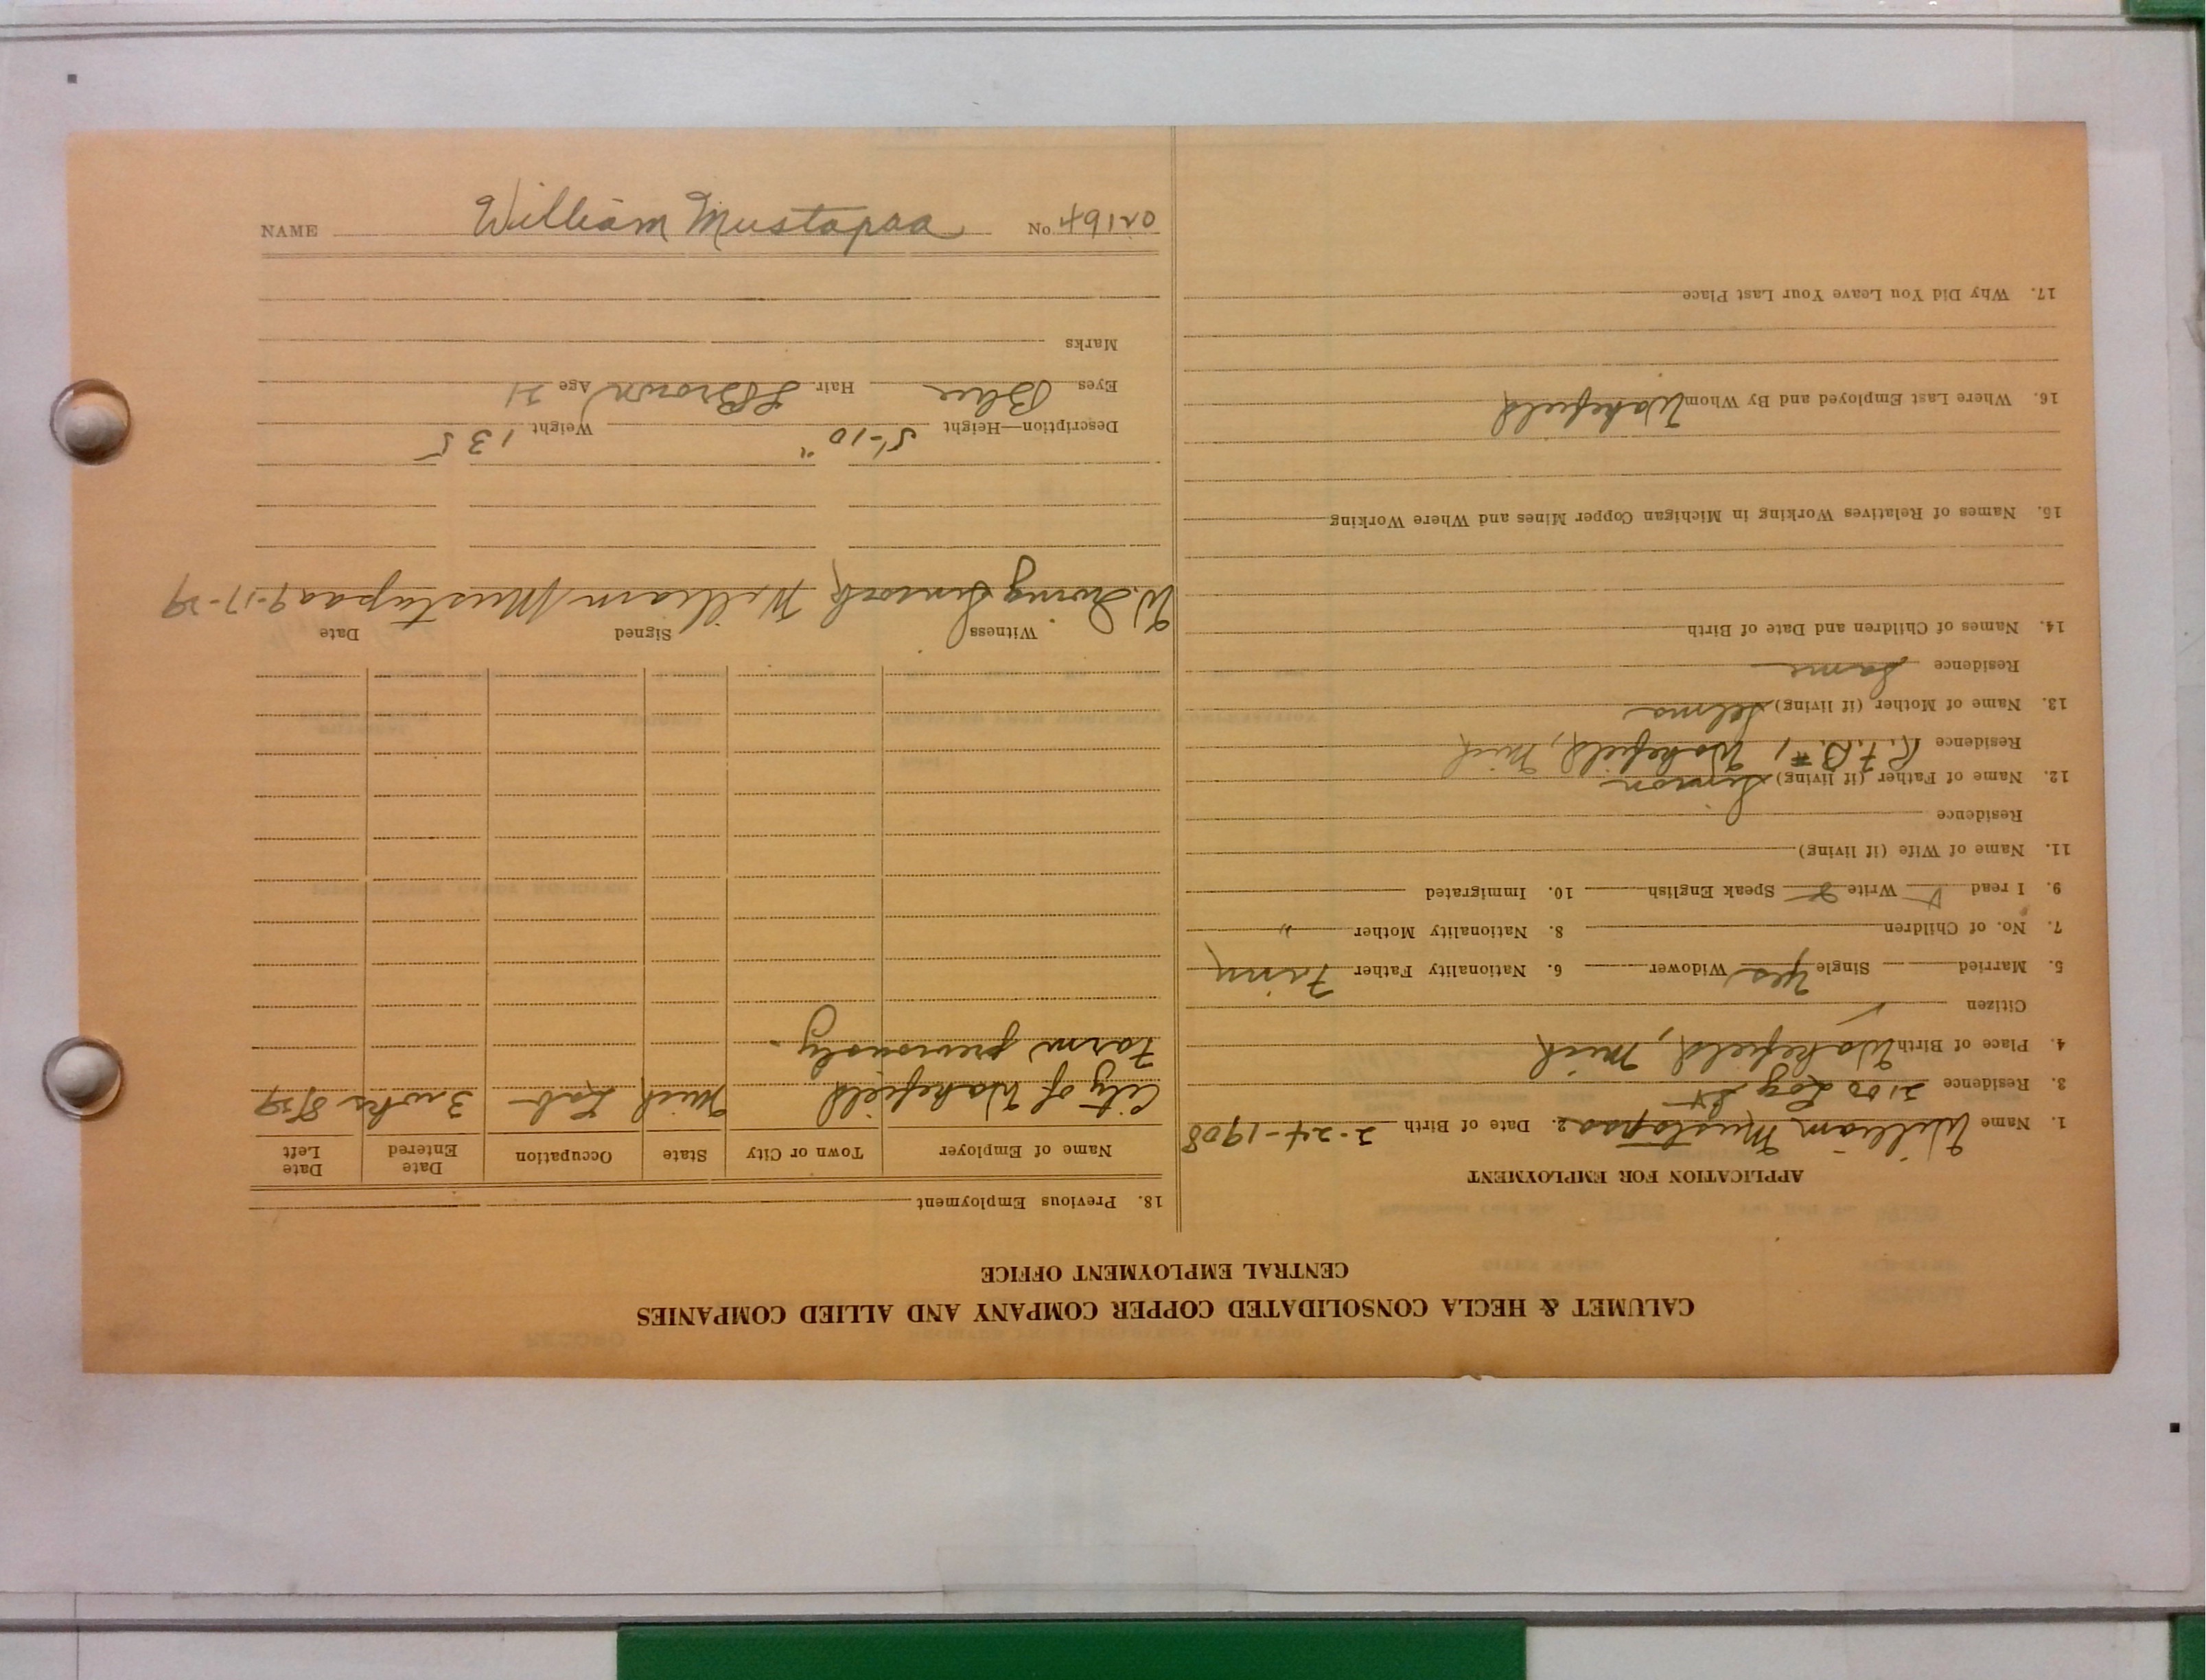 CALUMET & HECLA CONSOLIDATED COPPER COMPANY AND ALLIED COMPANIES
CENTRAL EMPLOYMENT OFFICE
APPLICATION FOR EMPLOYMENT
1. Name William Mustapaa 2. Date of Birth 2-24-1908
3. Residence 2100 Log St
4. Place of Birth Wakefield, Mich
Citizen ✓
5. Married Single Yes Widower 6. Nationality Father Finn
7. No. of Children 8. Nationality Mother "
9. I read Write Speak English 10. Immigrated
11. Name of Wife (if living)
Residence
12. Name of Father (if living) Simon
Residence R.F.D. #1 Wakefield, Mich
13. Name of Mother (if living) Selma
Residence Same
14. Names of Children and Date of Birth
15. Names of Relatives Working in Michigan Copper Mines and Where Working
16. Where Last Employed and By Whom Wakefield
17. Why Did You Leave Your Last Place
18. Previous Employment
Name of Employer Town or City State Occupation Date Entered Date Left
City of Wakefield Mich Lab 3 wks 8/29
Farm previously.
Witness Signed Date
W. Irving William Mustapaa 9-17-29
Description—Height 5'-10" Weight 135
Eyes Blue Hair L Brown Age 21
Marks
NAME William Mustapaa No. 49120